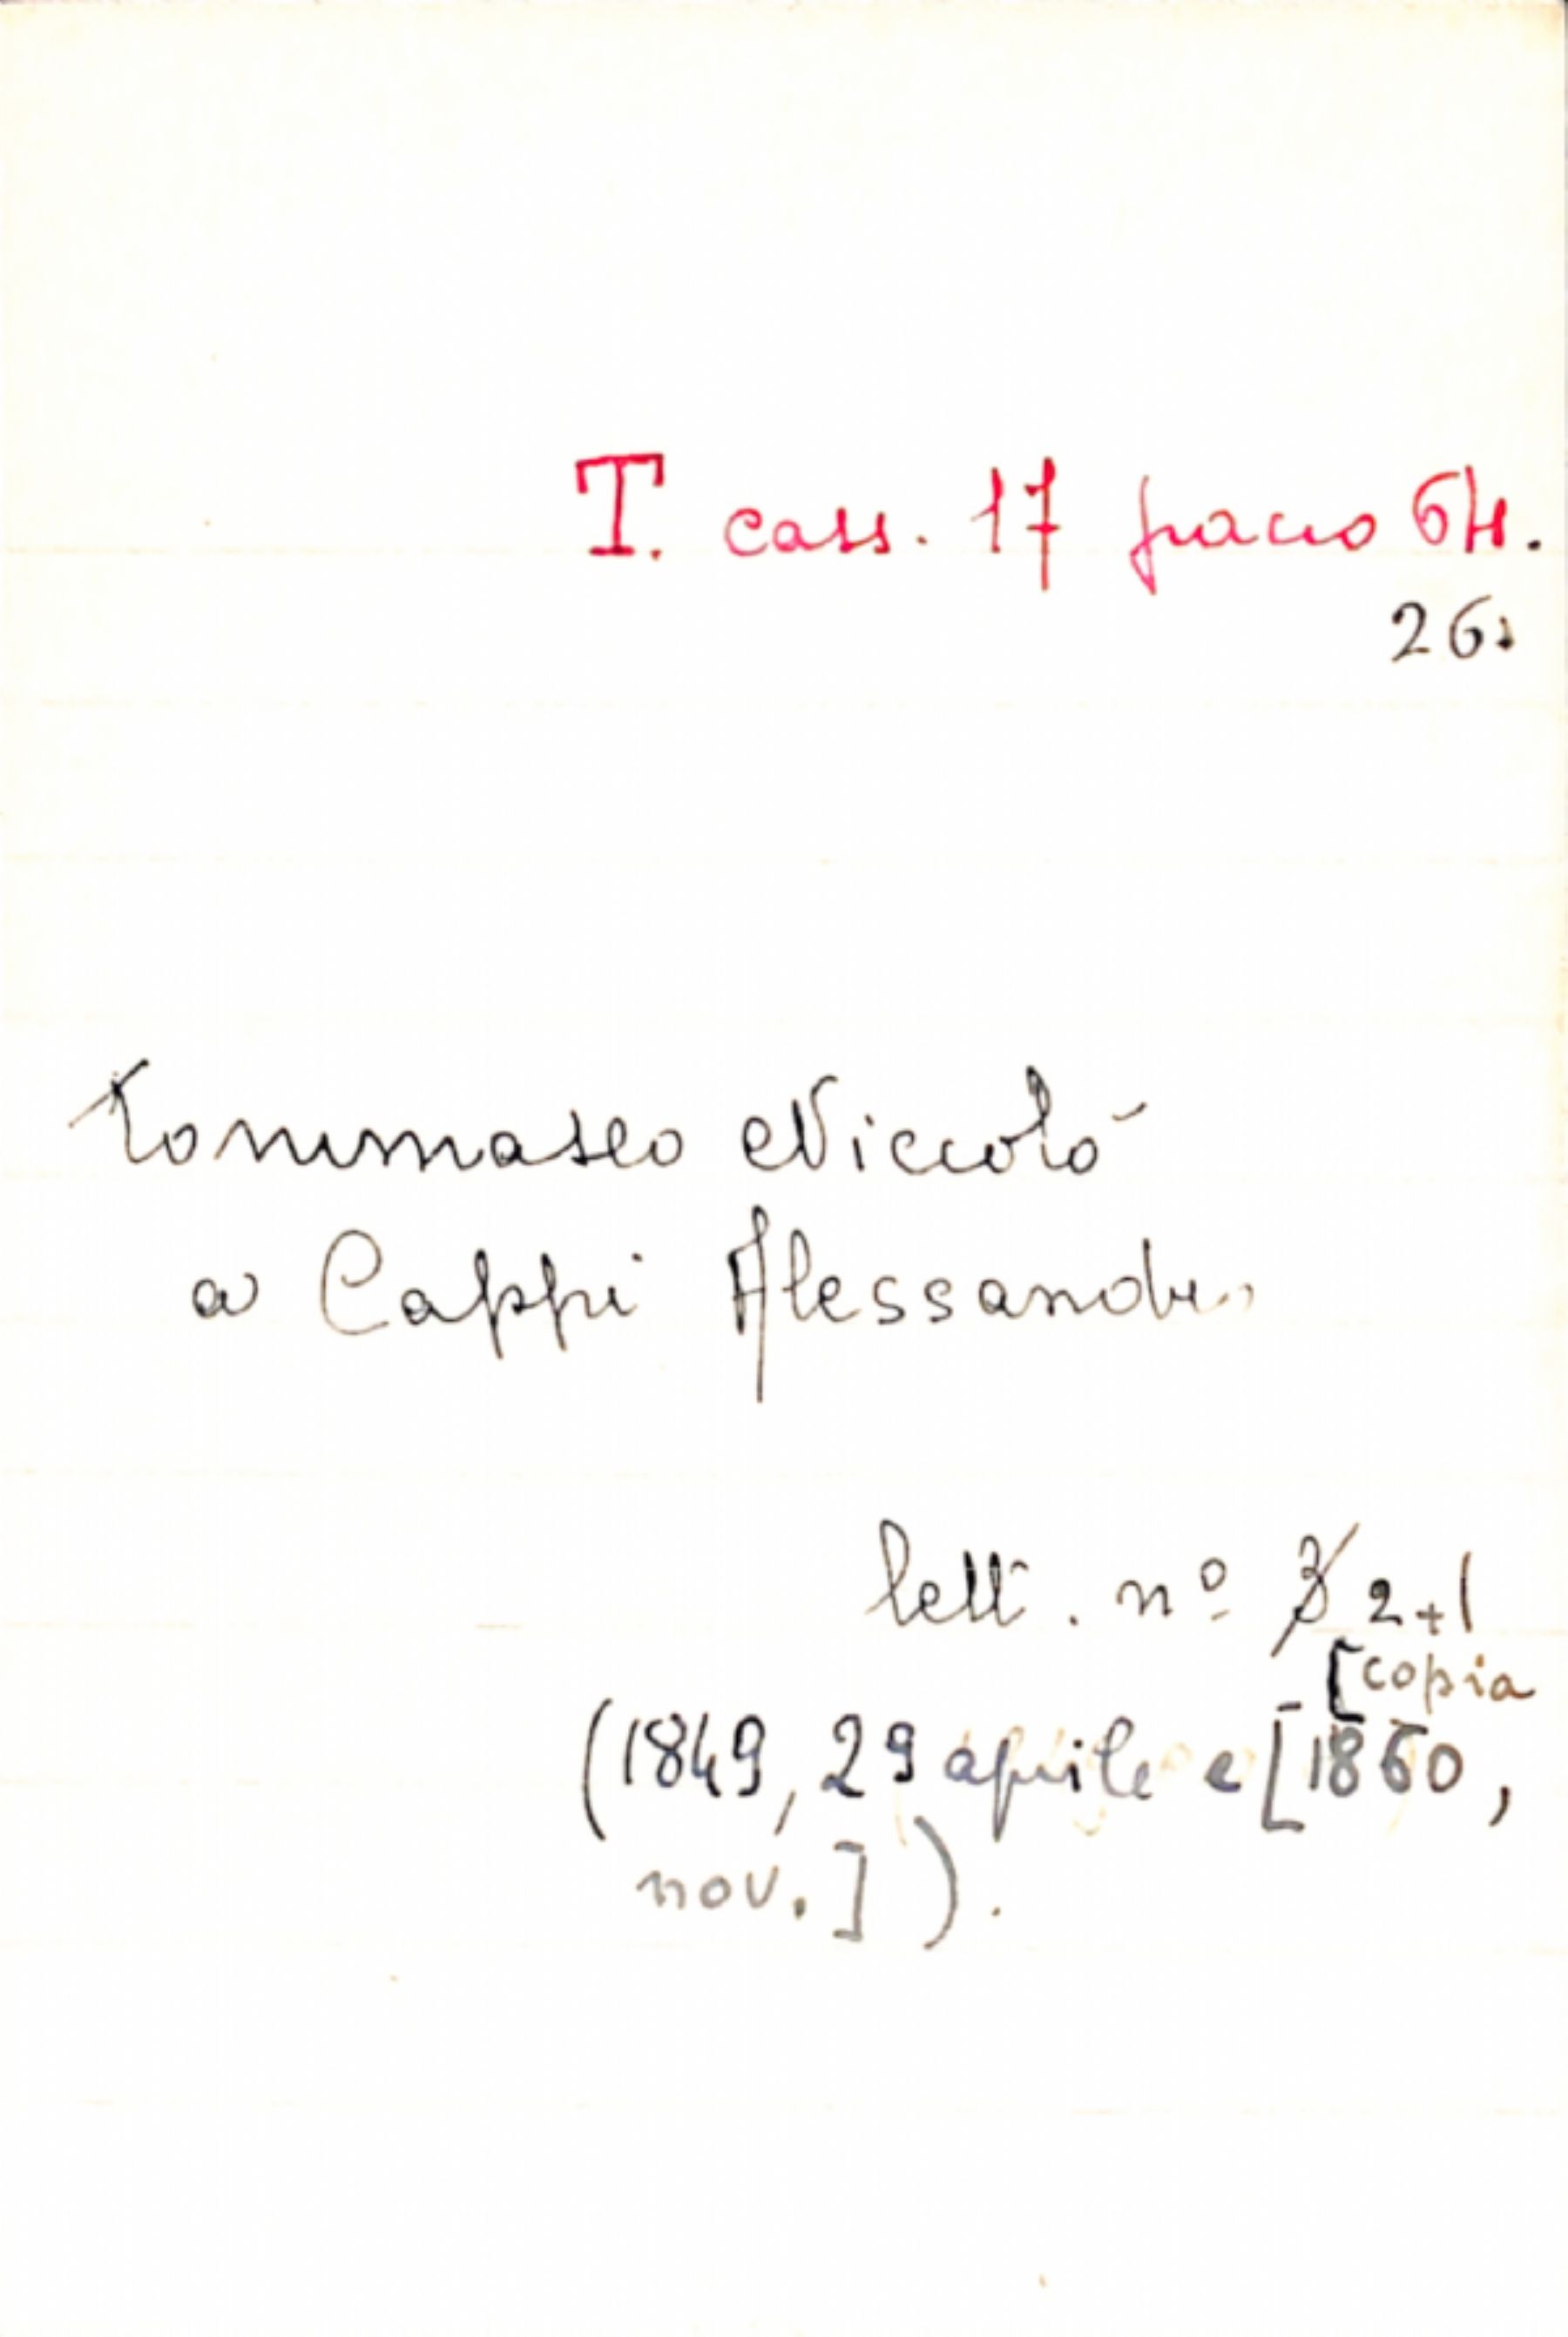 T. cass. 17 pacco 64.
26.
Tommaseo Niccolò
a Cappi Alessandro
lett. nº 3 2+1
[copia
(1849, 29 aprile e [1860,
nov.]).